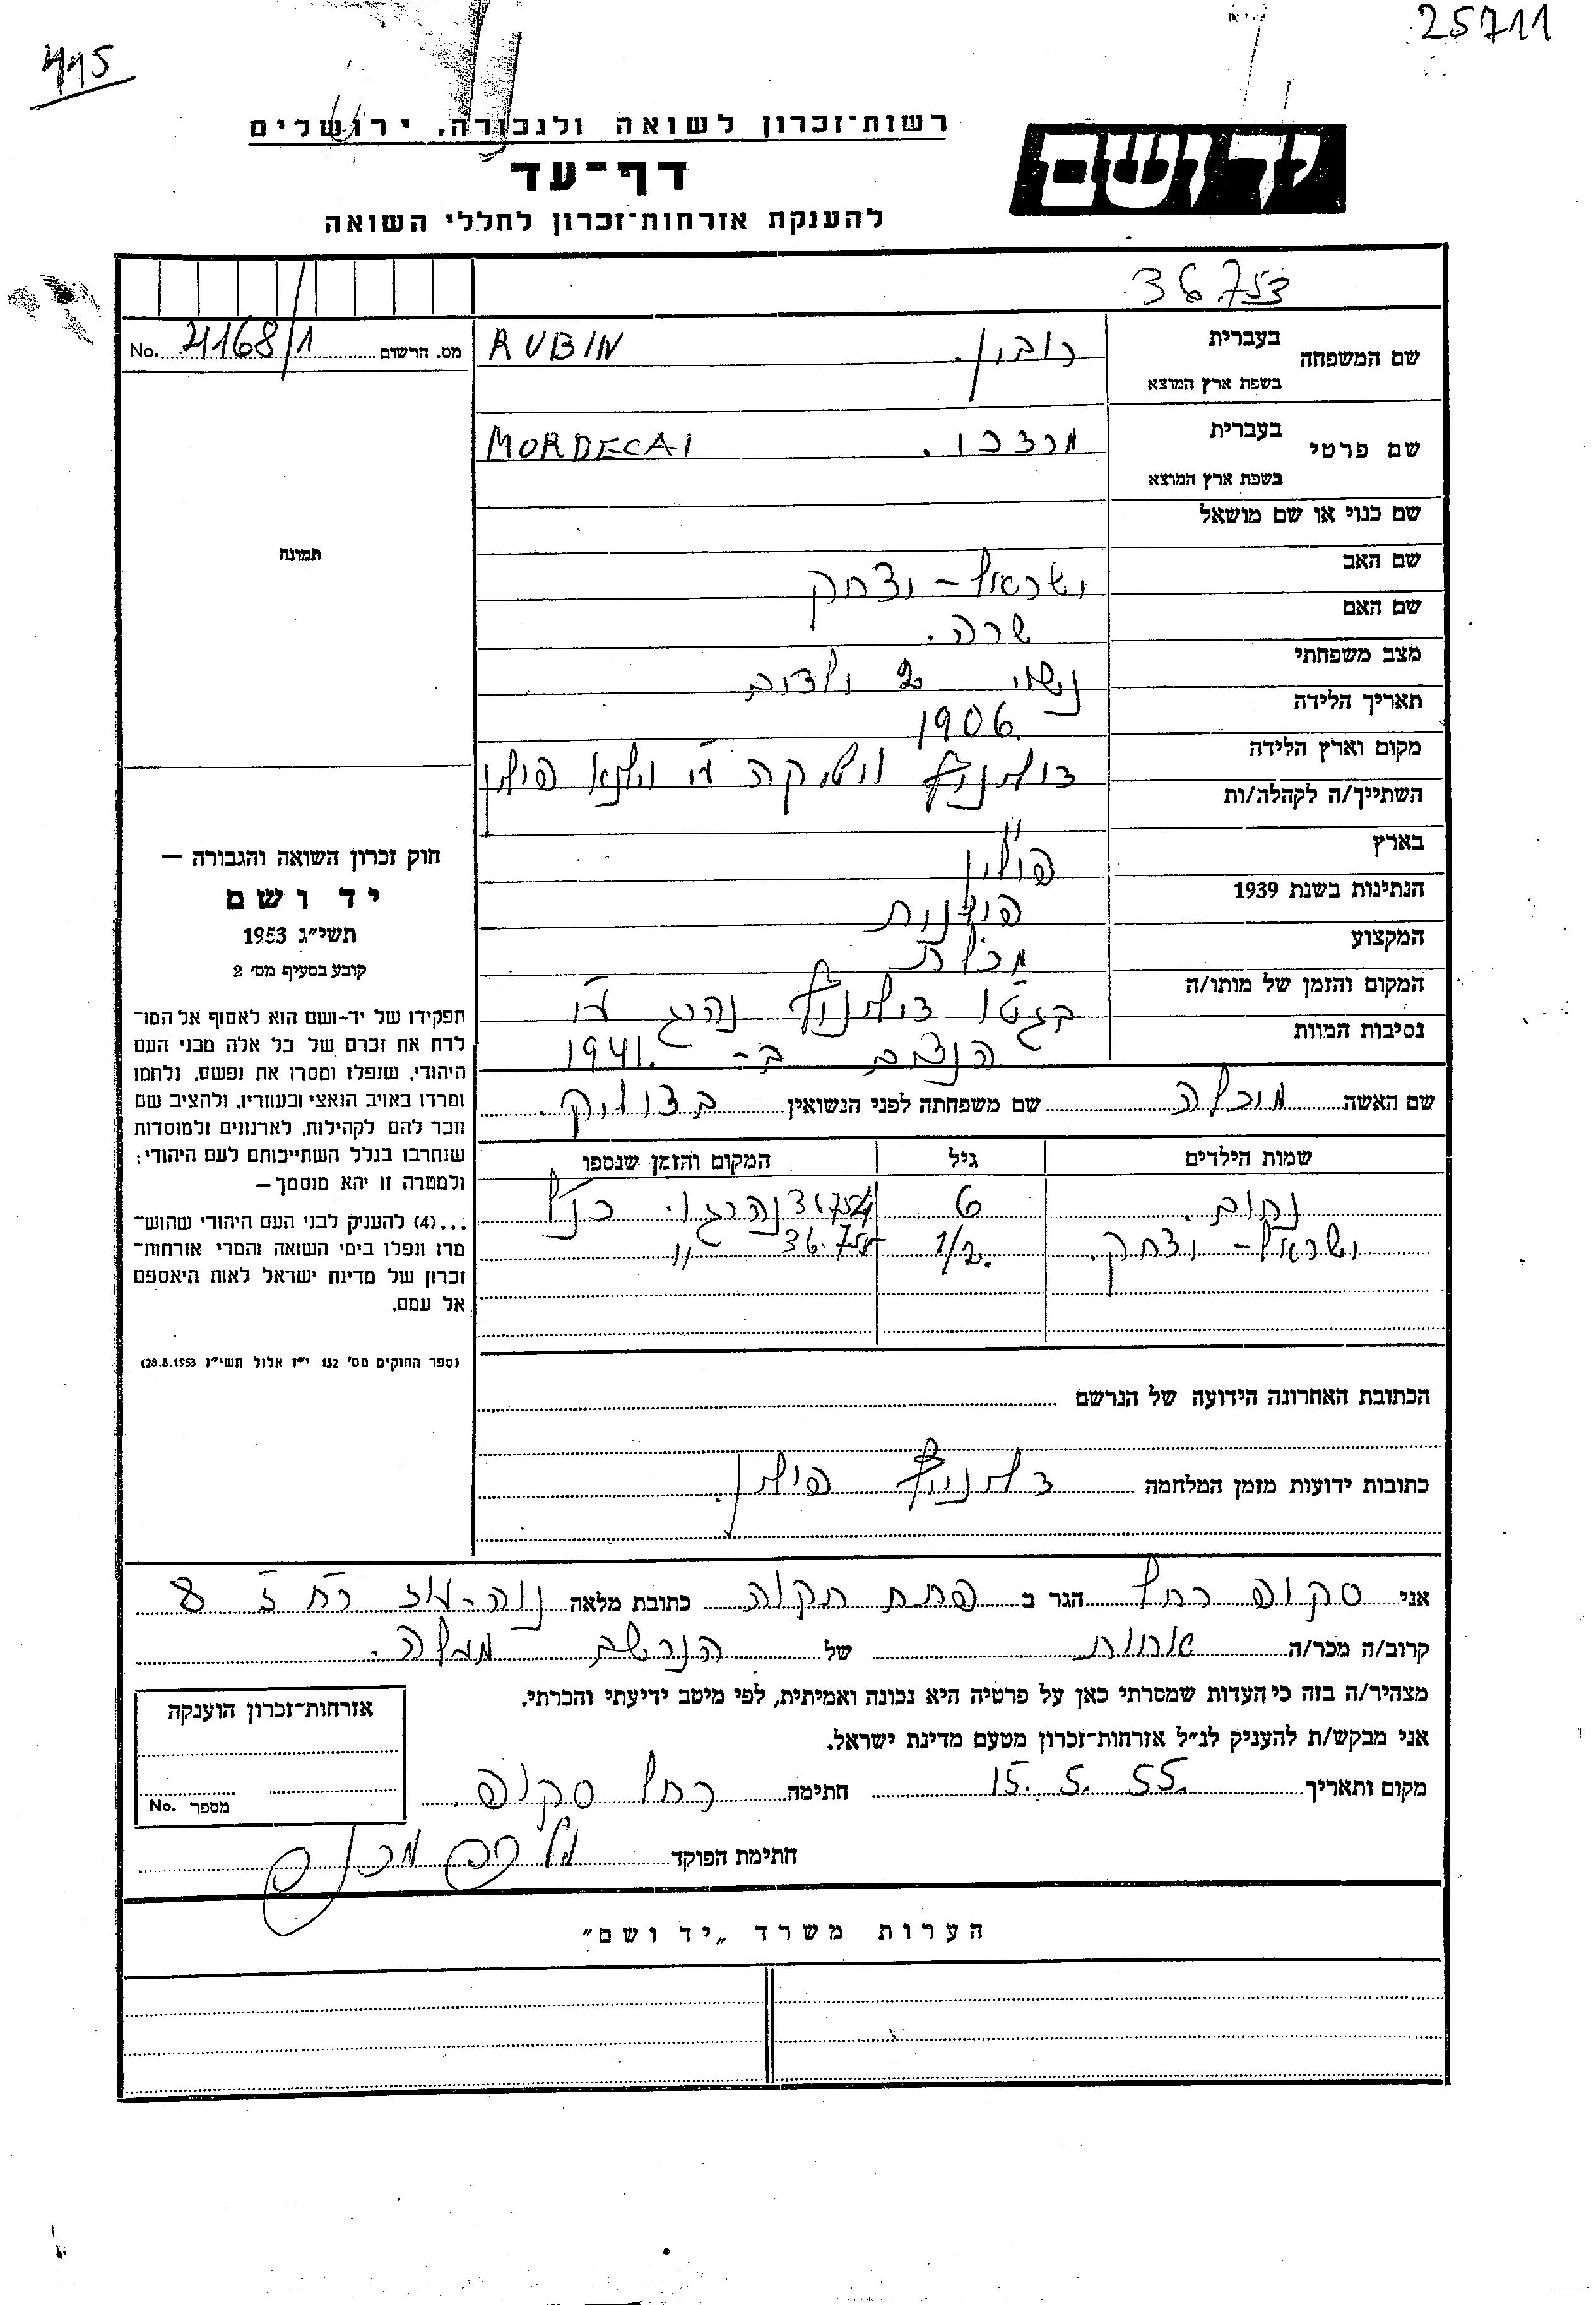 25711
415
רשות־זכרון לשואה ולגבורה, ירושלים
יד ושם
דף־עד
להענקת אזרחות־זכרון לחללי השואה
36753
מס. הרשום 4168/1 No.
שם המשפחה בעברית רובין. RUBIN
בשפת ארץ המוצא
שם פרטי בעברית מרדכי. MORDECAI
בשפת ארץ המוצא
שם כנוי או שם מושאל
תמונה
שם האב ישראל - יצחק
שם האם שרה.
מצב משפחתי נשוי 2 ילדים
תאריך הלידה 1906.
מקום וארץ הלידה פולין
השתייך/ה לקהלה/ות "
בארץ פולין
הנתינות בשנת 1939 פולנית
המקצוע
המקום והזמן של מותו/ה בגטו נהרג ע"י
נסיבות המוות ב- 1941.
שם האשה שם משפחתה לפני הנשואין
שמות הילדים גיל המקום והזמן שנספו
נחום. 6 36754 נהרגו. כנ"ל
ישראל - יצחק. 1/2. 36.755 "
חוק זכרון השואה והגבורה —
יד ושם
תשי״ג 1953
קובע בסעיף מס׳ 2
תפקידו של יד-ושם הוא לאסוף אל המו־
לדת את זכרם של כל אלה מבני העם
היהודי, שנפלו ומסרו את נפשם, נלחמו
ומרדו באויב הנאצי ובעוזריו, ולהציב שם
וזכר להם לקהילות, לארגונים ולמוסדות
שנחרבו בגלל השתייכותם לעם היהודי;
ולמטרה זו יהא מוסמך—
...(4) להעניק לבני העם היהודי שהוש־
מדו ונפלו בימי השואה והמרי אזרחות־
זכרון של מדינת ישראל לאות היאספם
אל עמם.
(ספר החוקים מס׳ 132 י״ז אלול תשי״ג 28.8.1953)
הכתובת האחרונה הידועה של הנרשם
כתובות ידועות מזמן המלחמה פולין.
אני רחל הגר ב פתח תקוה כתובת מלאה נוה-עוז 8
קרוב/ה מכר/ה של הנרשם מעלה.
מצהיר/ה בזה כי העדות שמסרתי כאן על פרטיה היא נכונה ואמיתית, לפי מיטב ידיעתי והכרתי.
אני מבקש/ת להעניק לנ״ל אזרחות־זכרון מטעם מדינת ישראל.
מקום ותאריך 15. 5. 55. חתימה רחל
אזרחות־זכרון הוענקה
מספר No.
חתימת הפוקד
הערות משרד „יד ושם״